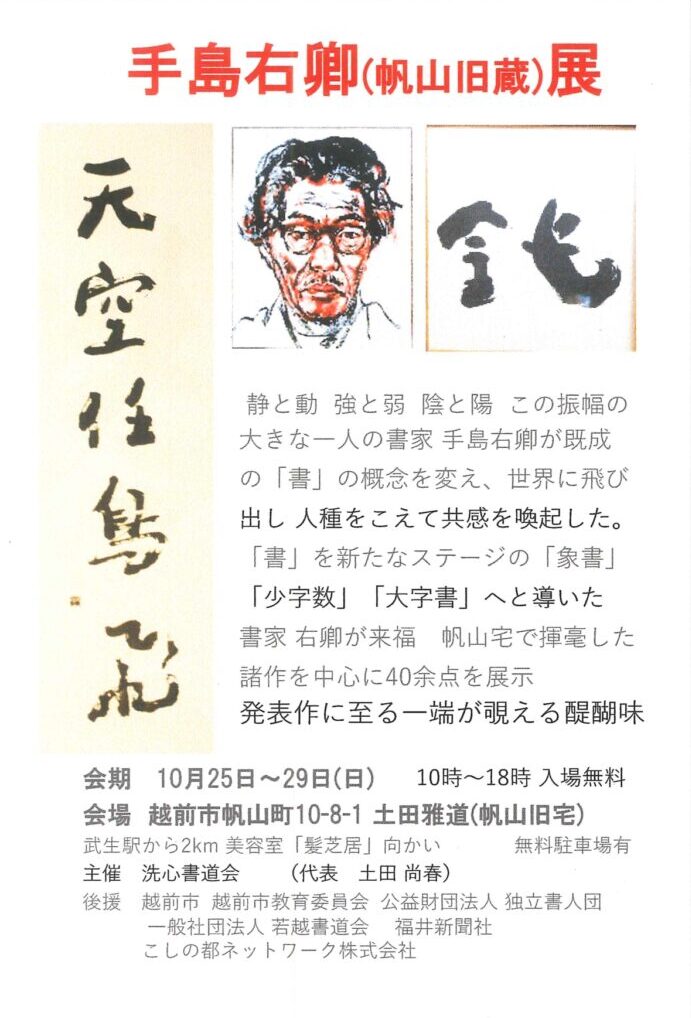 手島右卿(帆山旧蔵)展
天空任鳥飛
静と動 強と弱 陰と陽 この振幅の
大きな一人の書家 手島右卿が既成
の「書」の概念を変え、世界に飛び
出し 人種をこえて共感を喚起した。
「書」を新たなステージの「象書」
「少字数」「大字書」へと導いた
書家 右卿が来福 帆山宅で揮毫した
諸作を中心に40余点を展示
発表作に至る一端が覗える醍醐味
会期 10月25日~29日(日) 10時~18時 入場無料
会場 越前市帆山町10-8-1 土田雅道(帆山旧宅)
武生駅から2km 美容室「髪芝居」向かい 無料駐車場有
主催 洗心書道会 (代表 土田 尚春)
後援 越前市 越前市教育委員会 公益財団法人 独立書人団
一般社団法人 若越書道会 福井新聞社
こしの都ネットワーク株式会社